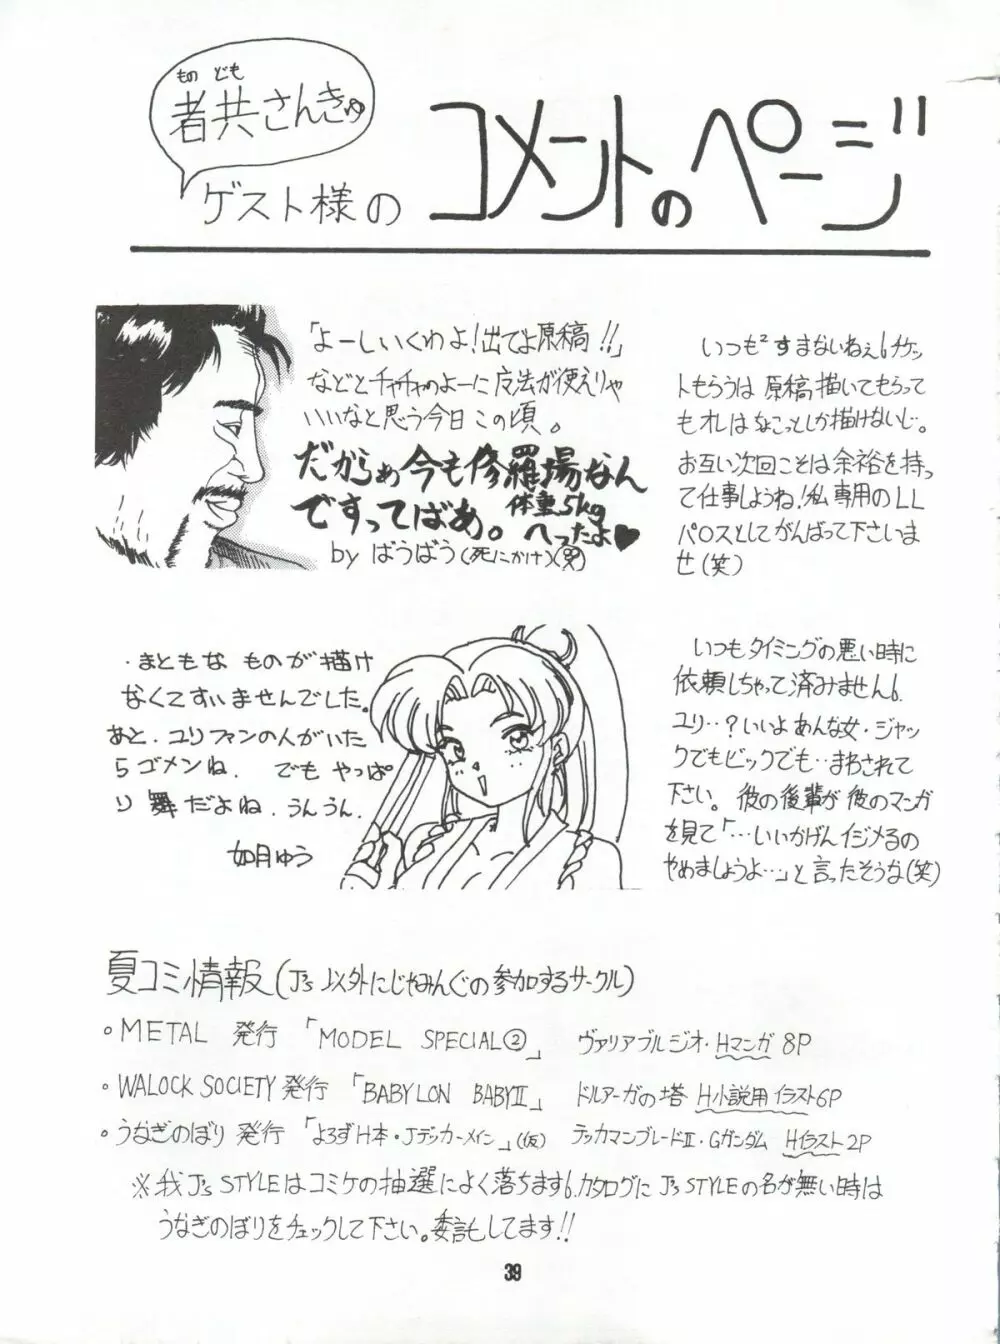 もの ども
者共さんきゅ
ゲスト様の コメントのページ
「よーしいくわよ！出でよ原稿!!」
などとチャチャのよーに魔法が使えりゃ
いいなと思う今日この頃。
だからぁ今も修羅場なん
ですってばあ。体重5kg
へったよ♥
by ばうばう(死にかけ)(男)
いつも²すまないねぇ。チケッ
トもらうは原稿描いてもらって
もオレはなことしか描けないし。
お互い次回こそは余裕を持っ
て仕事しようね！私専用のLL
パロスとしてがんばって下さいま
せ(笑)
・まともなものが描け
なくてすいませんでした。
あと、ユリファンの人がいた
らゴメンね。でもやっぱ
り舞だよね。うんうん。
如月ゆう
いつもタイミングの悪い時に
依頼しちゃって済みません。
ユリ‥？いいよあんな女・ジャッ
クでもビックでも‥まわされて
下さい。彼の後輩が彼のマンガ
を見て「…いいかげんイジメるの
やめましょうよ…」と言ったそうな(笑)
夏コミ情報(J's以外にじゃみんぐの参加するサークル)
○METAL 発行「MODEL SPECIAL②」 ヴァリアブルジオ・Hマンガ 8P
○WALOCK SOCIETY発行「BABYLON BABYⅡ」 ドルアーガの塔 H小説用イラスト6P
○うなぎのぼり 発行「よろずH本・Jデッカーメイン」(仮) テッカマンブレードⅡ・Gガンダム Hイラスト2P
※我J's STYLEはコミケの抽選によく落ちます。カタログにJ's STYLEの名が無い時は
うなぎのぼりをチェックして下さい。委託してます!!
39